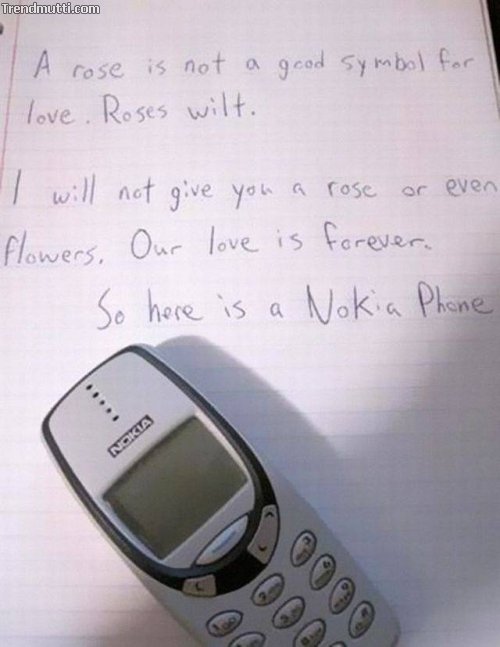 Trendmutti.com
A rose is not a good symbol for
love. Roses wilt.
I will not give you a rose or even
flowers. Our love is forever.
So here is a Nokia Phone
NOKIA